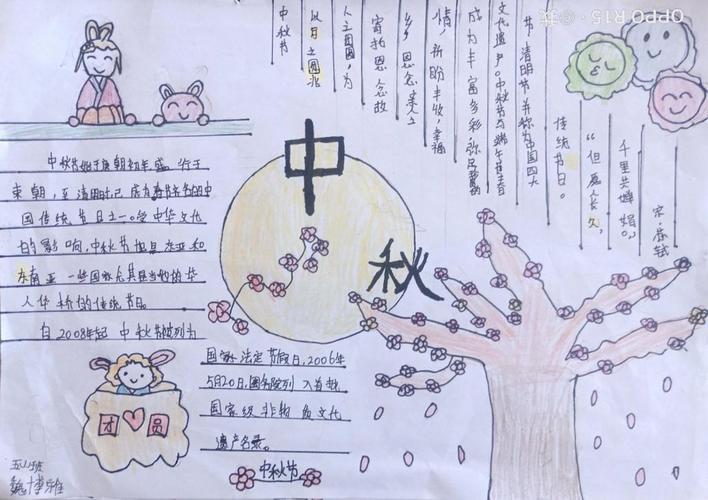 中
秋
中秋节
以月之圆兆
人之团圆,为
寄托思念故
乡,思念亲人之
情,祈盼丰收、幸福
成为丰富多彩、弥足珍贵的
文化遗产。中秋节与端午节、春
节、清明节并称为中国四大
传统节日。
“但愿人长久,
千里共婵娟。”
宋·苏轼
中秋节始于唐朝初年,盛行于
宋朝,至
清时,已成为
中
国传统节日之一。受中华文化
的影响,中秋节也是东亚和
东南亚一些国家尤其是当地的华
人华侨的传统节日。
自2008年起中秋节被列为
国家法定节假日,2006年
5月20日,国务院列入首批
国家级非物质文化
遗产名录。
团 圆
中秋节
OPPO R15